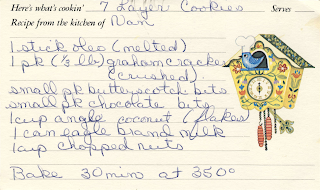 Here's what's cookin' 7 Layer Cookies Serves
Recipe from the kitchen of Nan
1 stick oleo (melted)
1 pk (1/3 lb) graham cracker
(crushed)
small pk butterscotch bits
small pk chocolate bits
1 cup angle coconut (flakes
1 can eagle brand milk
1 cup chopped nuts
Bake 30 mins at 350°